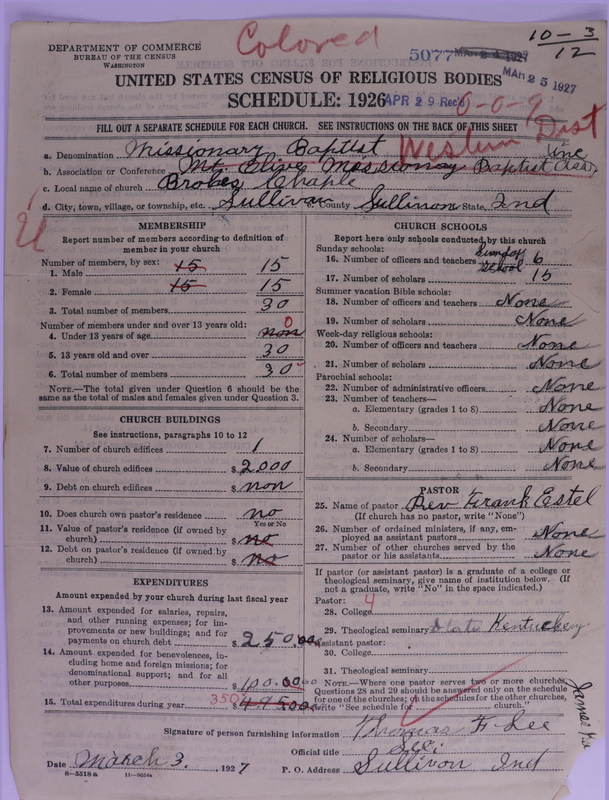 Colored
10-3
12
DEPARTMENT OF COMMERCE
BUREAU OF THE CENSUS
WASHINGTON
5077 MAR 24 1927
MAR 25 1927
UNITED STATES CENSUS OF RELIGIOUS BODIES
SCHEDULE: 1926
APR 29 Rec'd
0-0-9
FILL OUT A SEPARATE SCHEDULE FOR EACH CHURCH. SEE INSTRUCTIONS ON THE BACK OF THIS SHEET
Western Dist
a. Denomination Missionary Baptist
b. Association or Conference Mt. Olive Missionay Baptist Ass
c. Local name of church Brokes Chaple
d. City, town, village, or township, etc. Sullivan e. County Sullivan State, Ind
MEMBERSHIP
Report number of members according to definition of member in your church
Number of members, by sex:
1. Male 15 15
2. Female 15 15
3. Total number of members 30
Number of members under and over 13 years old:
4. Under 13 years of age non 0
5. 13 years old and over 30
6. Total number of members 30
NOTE.—The total given under Question 6 should be the same as the total of males and females given under Question 3.
CHURCH BUILDINGS
See instructions, paragraphs 10 to 12
7. Number of church edifices 1
8. Value of church edifices $ 2,000
9. Debt on church edifices $ non
10. Does church own pastor's residence? no
Yes or No
11. Value of pastor's residence (if owned by church) $ no
12. Debt on pastor's residence (if owned by church) $ no
EXPENDITURES
Amount expended by your church during last fiscal year
13. Amount expended for salaries, repairs, and other running expenses; for improvements or new buildings; and for payments on church debt $ 250.00
14. Amount expended for benevolences, including home and foreign missions; for denominational support; and for all other purposes $ 100.00
15. Total expenditures during year 350 $ 495.00
CHURCH SCHOOLS
Report here only schools conducted by this church
Sunday schools:
16. Number of officers and teachers Sunday School 6
17. Number of scholars 15
Summer vacation Bible schools:
18. Number of officers and teachers None
19. Number of scholars None
Week-day religious schools:
20. Number of officers and teachers None
21. Number of scholars None
Parochial schools:
22. Number of administrative officers None
23. Number of teachers—
a. Elementary (grades 1 to 8) None
b. Secondary None
24. Number of scholars—
a. Elementary (grades 1 to 8) None
b. Secondary None
PASTOR
25. Name of pastor Rev Frank Estel
(If church has no pastor, write "None")
26. Number of ordained ministers, if any, employed as assistant pastors None
27. Number of other churches served by the pastor or his assistants None
If pastor (or assistant pastor) is a graduate of a college or theological seminary, give name of institution below. (If not a graduate, write "No" in the space indicated.)
Pastor: 4
28. College
29. Theological seminary State Kentuckey
Assistant pastor:
30. College
31. Theological seminary
NOTE.—Where one pastor serves two or more churches, Questions 28 and 29 should be answered only on the schedule for one of the churches; at the schedules for the other churches, write "See schedule for church."
Signature of person furnishing information Thomas F Lee
Official title Sec.
Date March 3, 1927 P. O. Address Sullivon Ind
8—5518a 11—9054a